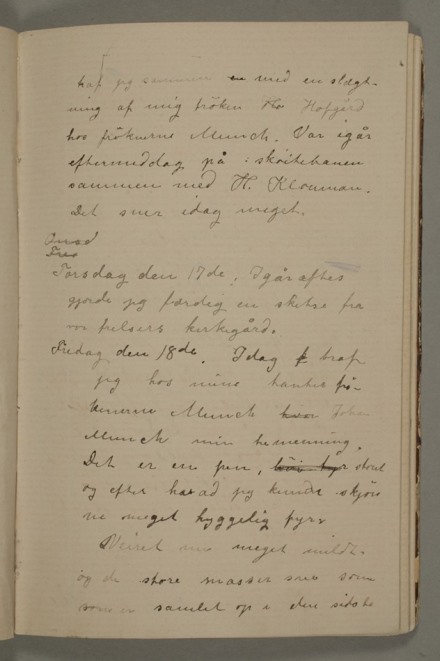 traf jeg sammen med en slægt-
ning af mig frøken Hofgård
hos frøknerne Munch. Var igår
eftermiddag på skøitebanen
sammen med H. Klouman.
Det sner idag meget.
Onsd
Torsdag den 17de. Igåraftes
gjorde jeg færdig en skitse fra
vor frelsers kirkegård.
Fredag den 18de. Idag traf
jeg hos mine tanter frø-
kenerne Munch hvor John
Munch min
Det er en pen, stout
og efter hvad jeg kunde skjøn
ne meget hyggelig fyr
Veiret meget mildt.
og de store masser sne som
samlet op i den sidste